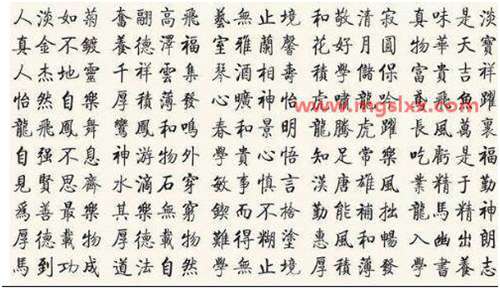 人淡如菊 奮翮高飛 藝無止境 和敬清寂 真味是淡
真金不鍍 養德澤福 室雅蘭馨 花好月圓 物華天寶
人杰地靈 千祥雲集 富貴吉祥
怡然自樂 厚積薄發 心曠神怡 虎嘯龍吟 鳶飛魚躍
www.mgslxx.com
龍飛鳳舞 鸞鳳和鳴 春和景明 龍騰虎躍 長風萬裏
自强不息 神游物外 學貴心悟 知足常樂 吃虧是福
見賢思齊 水滴石穿 敏事慎言 漢唐雄風 業精于勤
爲善最樂 其樂無窮 鍥而不捨 勤能補拙 龍馬精神
厚德載物 厚德載物 難得糊塗 惠風和暢 入幽出朗
馬到功成 道法自然 學無止境 厚積薄發 學書養志